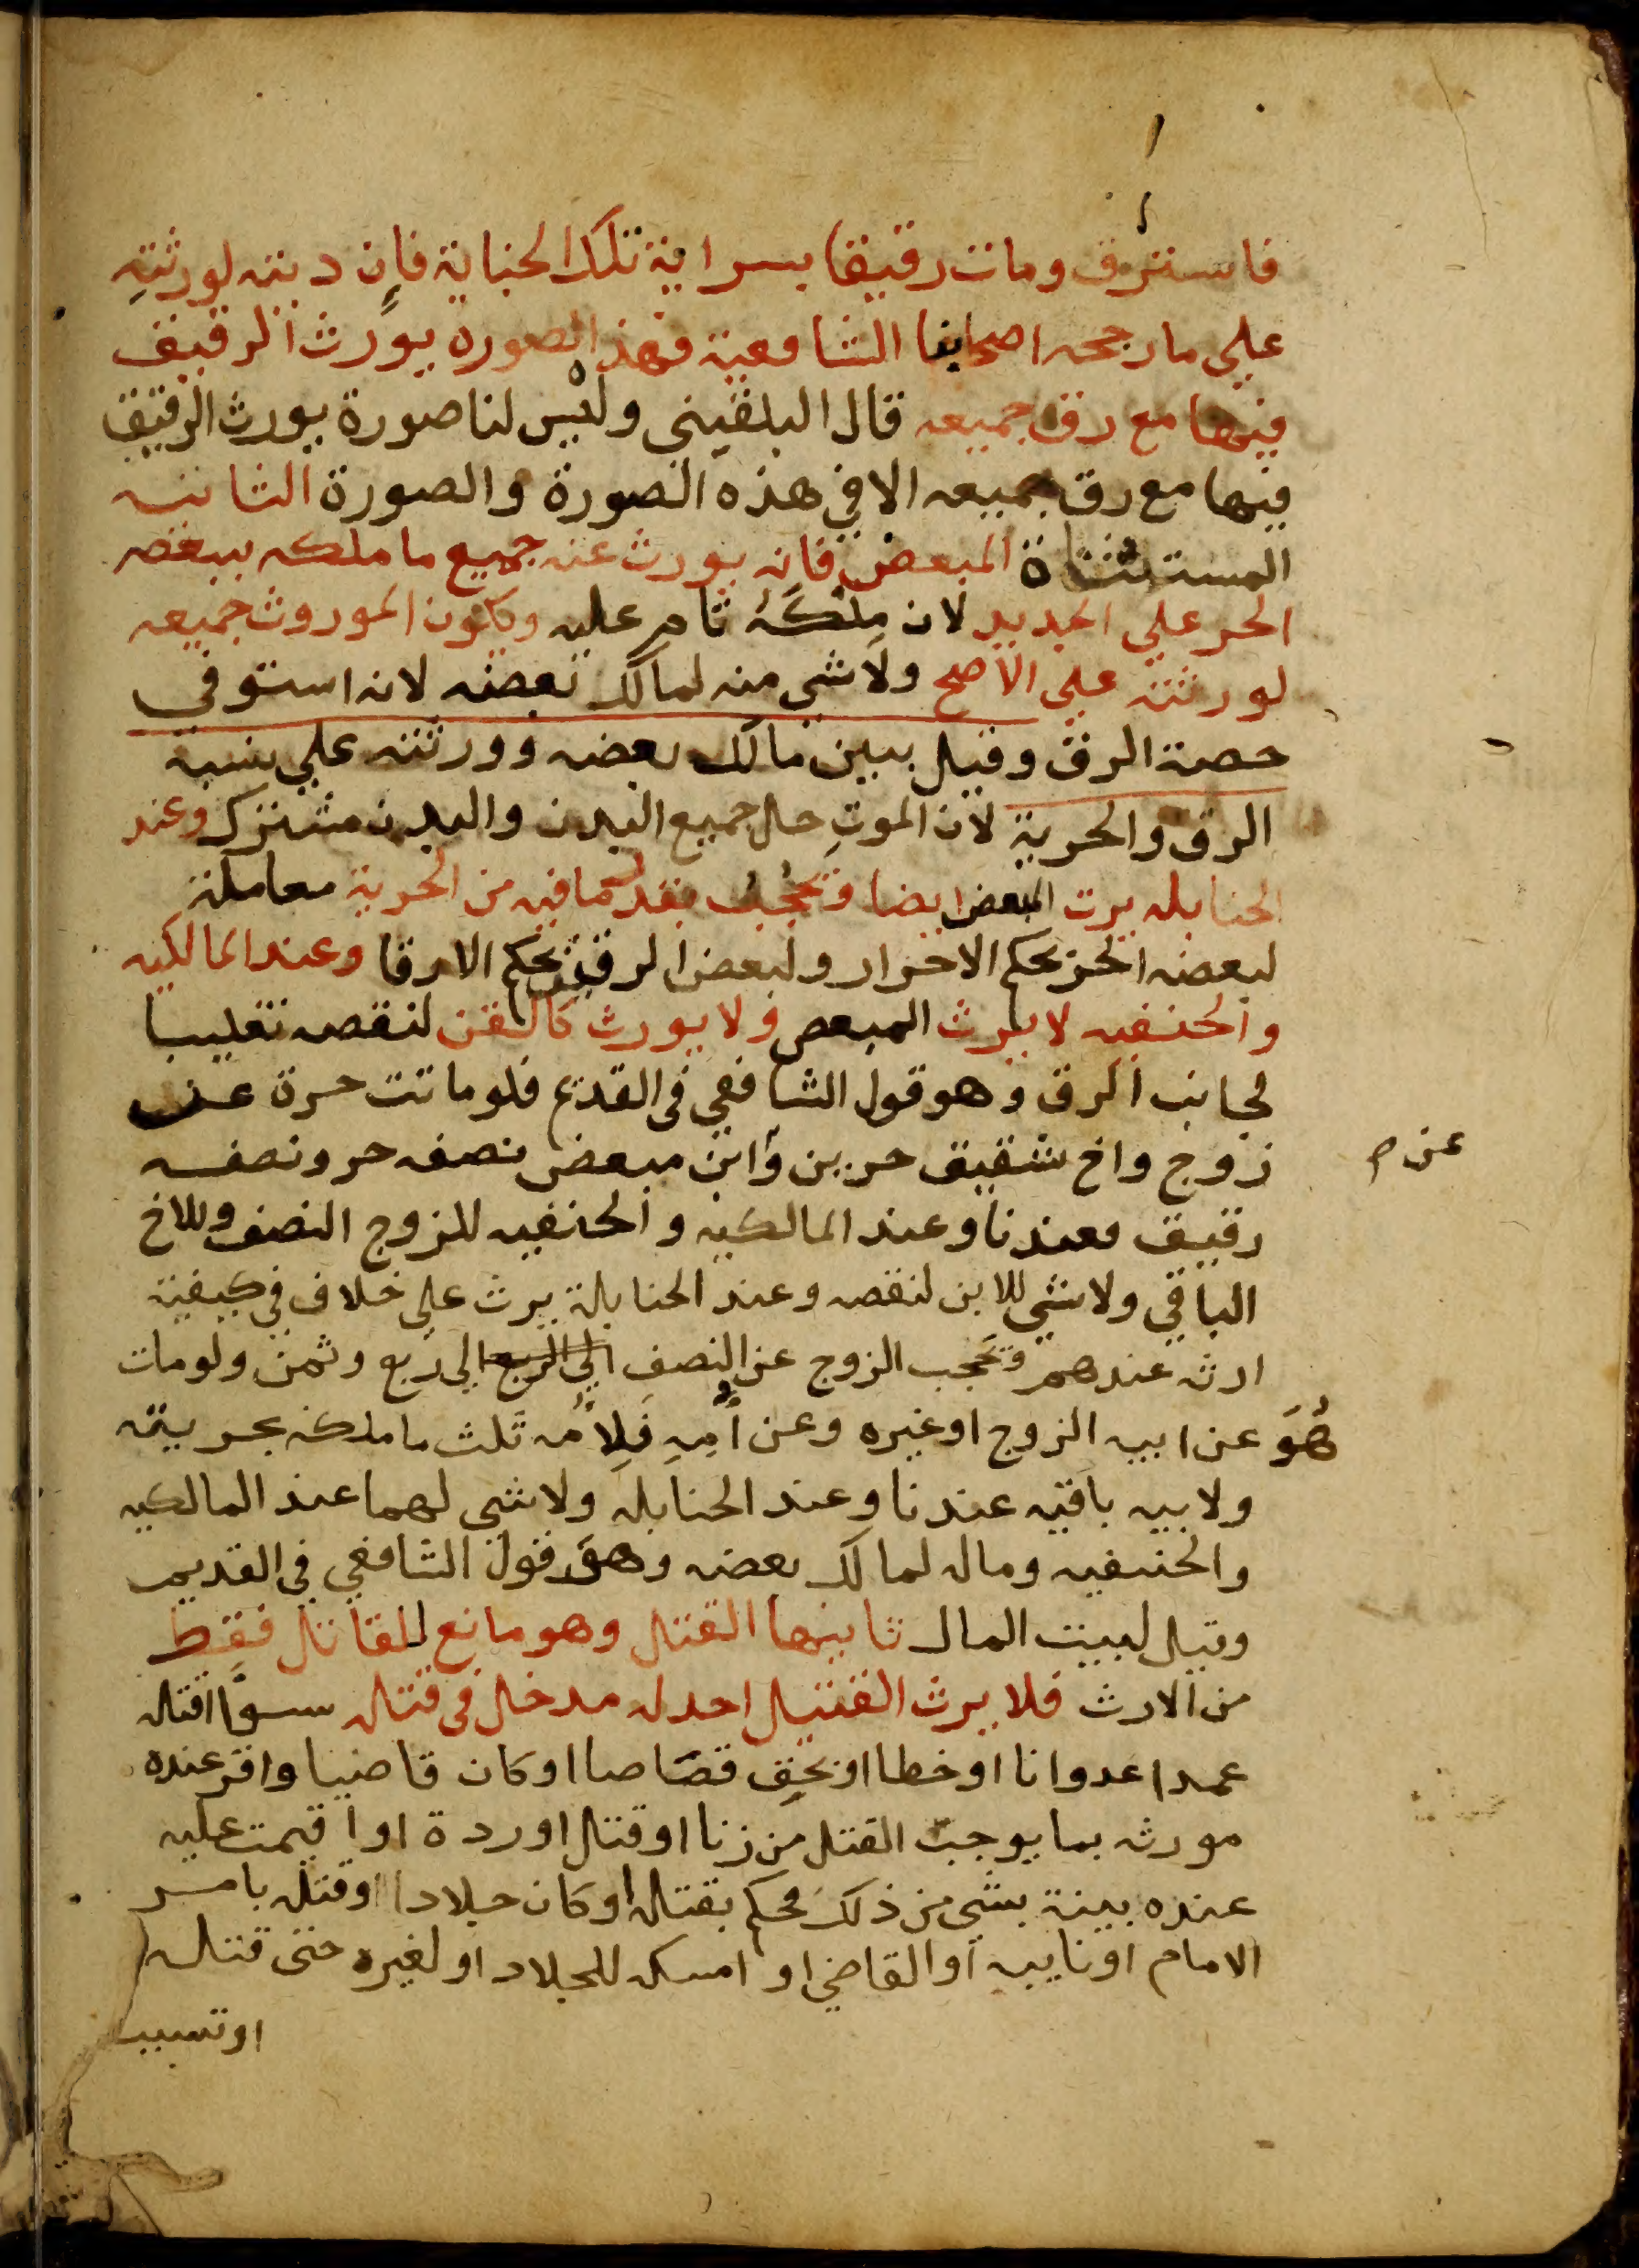 فاسترق ومات رقيقا بسراية تلك الجناية فإن ديته لورثتهِ
علي ما رجحه اصحابنا الشافعية فهذه الصورة يورث الرقيق
فيها مع رق جميعه قال البلقيني وليس لنا صورة يورث الرقيق
فيها مع رق جميعه الا في هذه الصورة والصورة الثانيه
المستثناة المبعض فانه يورث عنه جميع ما ملكه ببعضه
الحر علي الجديد لان مِلكَهُ تام عليه ويكون الموروث جميعه
لورثته علي الاصح ولا شي منه لمالك بعضه لانه استوفي
حصة الرق وقيل بين مالك بعضه وورثته علي نسبة
الرق والحرية لان الموت حل جميع البدن والبدن مشترك وعند
الحنابله يرث المبعض ايضا ويحجب بقدر ما فيه من الحرية معاملة
لبعضه الحر بحكم الاحرار ولبعض الرقيق بحكم الارقا وعند المالكيه
والحنفيه لا يرث المبعض ولا يورث كالقن لنقصه تغليبا
لجانب الرق وهو قول الشافعي في القديم فلو ماتت حرة عن
زوج واخ شقيق حرين وابن مبعض نصفه حر ونصفه
عن م
رقيق فعندنا وعند المالكيه والحنفيه للزوج النصف وللاخ
الباقي ولا شي للابن لنقصه وعند الحنابلة يرث علي خلاف في كيفية
ارثه عندهم ويحجب الزوج عن النصف الي الربع الي ربع وثمن ولو مات
هُوَ عن ابيه الزوج او غيره وعن أُمِهِ فَلِأُمه ثلث ما ملكه بحريته
ولابيه باقيه عندنا وعند الحنابله ولا شي لهما عند المالكيه
والحنفيه وماله لمالك بعضه وهو قول الشافعي في القديم
وقيل لبيت المال ثانيها القتل وهو مانع للقاتل فقط
من الارث فلا يرث القتيل احد له مدخل في قتله سوا قتله
عمدا عدوانا او خطا او بحق قصاصا او كان قاضيا واقر عنده
مورثه بما يوجب القتل من زنا او قتل او ردة او اقيمت عليه
عنده بينة بشي من ذلك فحكم بقتله او كان جلادا او قتله بامر
الامام او نايبه او القاضي او امسكه للجلاد او لغيره حتى قتله
او تسبب